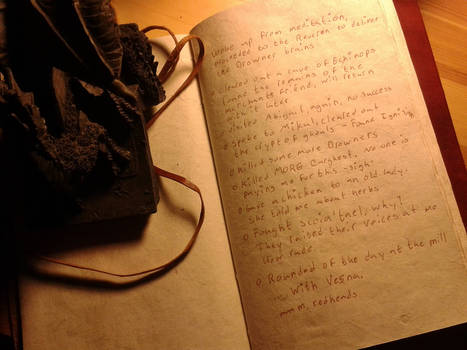 Woke up from meditation,
proceeded to the Reverend to deliver
Drowner brains
Cleared out a cave of Echinops
found the remains of the
merchants friend, will return
with it later
Visited Abigail, again, no success
o Spoke to Mikul, cleared out
the crypt of ghouls - Found Igni sign
o Killed some more Drowners
o Killed MORE Barghest. No one is
paying me for this -sigh-
o Gave a chicken to an old lady.
She told me about herbs
o Fought scoia'tael, why?
They raised their voices at me
How rude.
o Rounded of the day at the mill
... with Vesna,
mmm, redheads